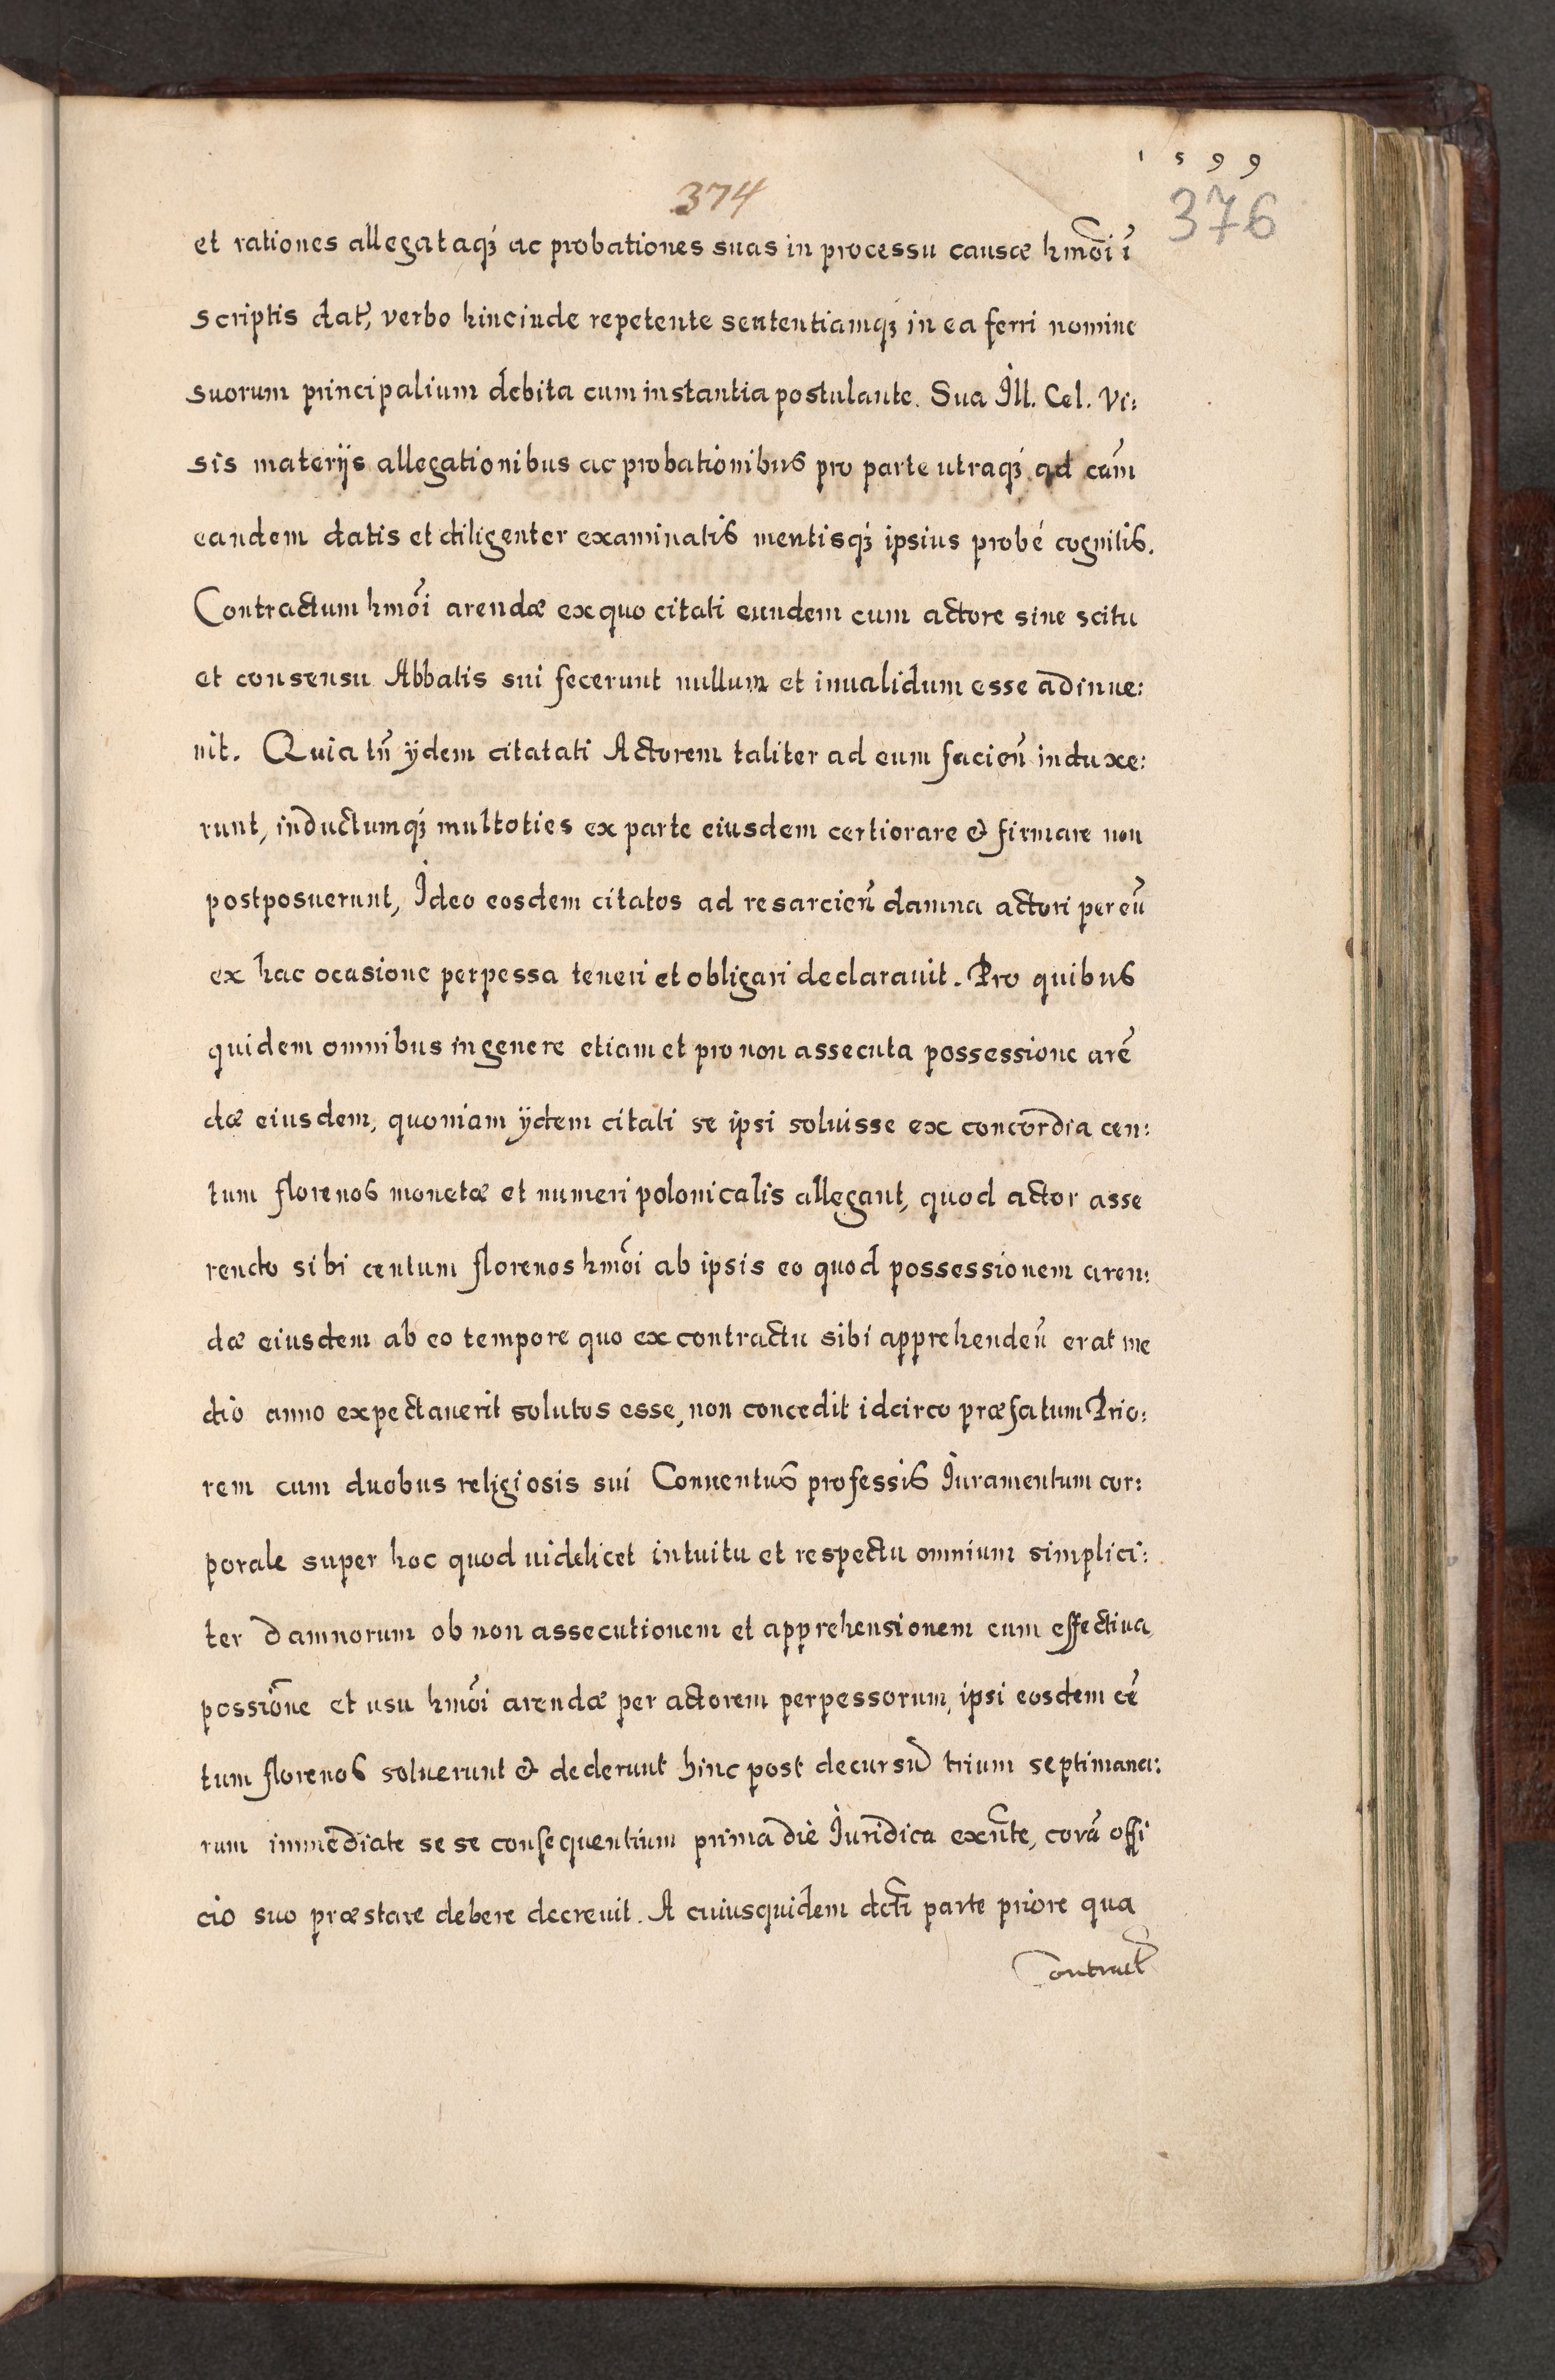 1599
374
376
et rationes allegataqꝫ ac probationes suas in processu causæ hmōi ī
scriptis dat, verbo hincinde repetente sententiamqꝫ in ea ferri nomine
suorum principalium debita cum instantia postulante. Sua Ill. Cel. Vi:
sis materijs allegationibus ac probationibus pro parte utraqꝫ ad cām
eandem datis et diligenter examinatis mentisqꝫ ipsius probé cognitis.
Contractum hmōi arendæ ex quo citati eundem cum actore sine scitu
et consensu Abbatis sui fecerunt nullum et inualidum esse adinue:
nit. Quia tn̄ ÿdem citatati Actorem taliter ad eum facien̄ induxe:
runt, inductumqꝫ multoties ex parte eiusdem certiorare & firmare non
postposuerunt, Ideo eosdem citatos ad resarcien̄ damna actori per eū
ex hac ocasione perpessa teneri et obligari declarauit. Pro quibus
quidem omnibus in genere etiam et pro non assecuta possessione arē
dæ eiusdem, quoniam ÿdem citati se ipsi soluisse ex concordia cen:
tum florenos monetæ et numeri polonicalis allegant, quod actor asse
rendo sibi centum florenos hmōi ab ipsis eo quod possessionem aren:
dæ eiusdem ab eo tempore quo ex contractu sibi apprehenden̄ erat me
dio anno expectauerit solutos esse, non concedit idcirco præfatum Prio:
rem cum duobus religiosis sui Conuentus professis Iuramentum cor:
porale super hoc quod uidelicet intuitu et respectu omnium simplici:
ter damnorum ob non assecutionem et apprehensionem cum effectiua
possiōne et usu hmōi arendæ per actorem perpessorum, ipsi eosdem cē
tum florenos soluerunt & dederunt hinc post decursu trium septimana:
rum immediate se se consequentium prima die Iuridica exn̄te, corā offi
cio suo præstare debere decreuit. A cuiusquidem dcti parte priore qua